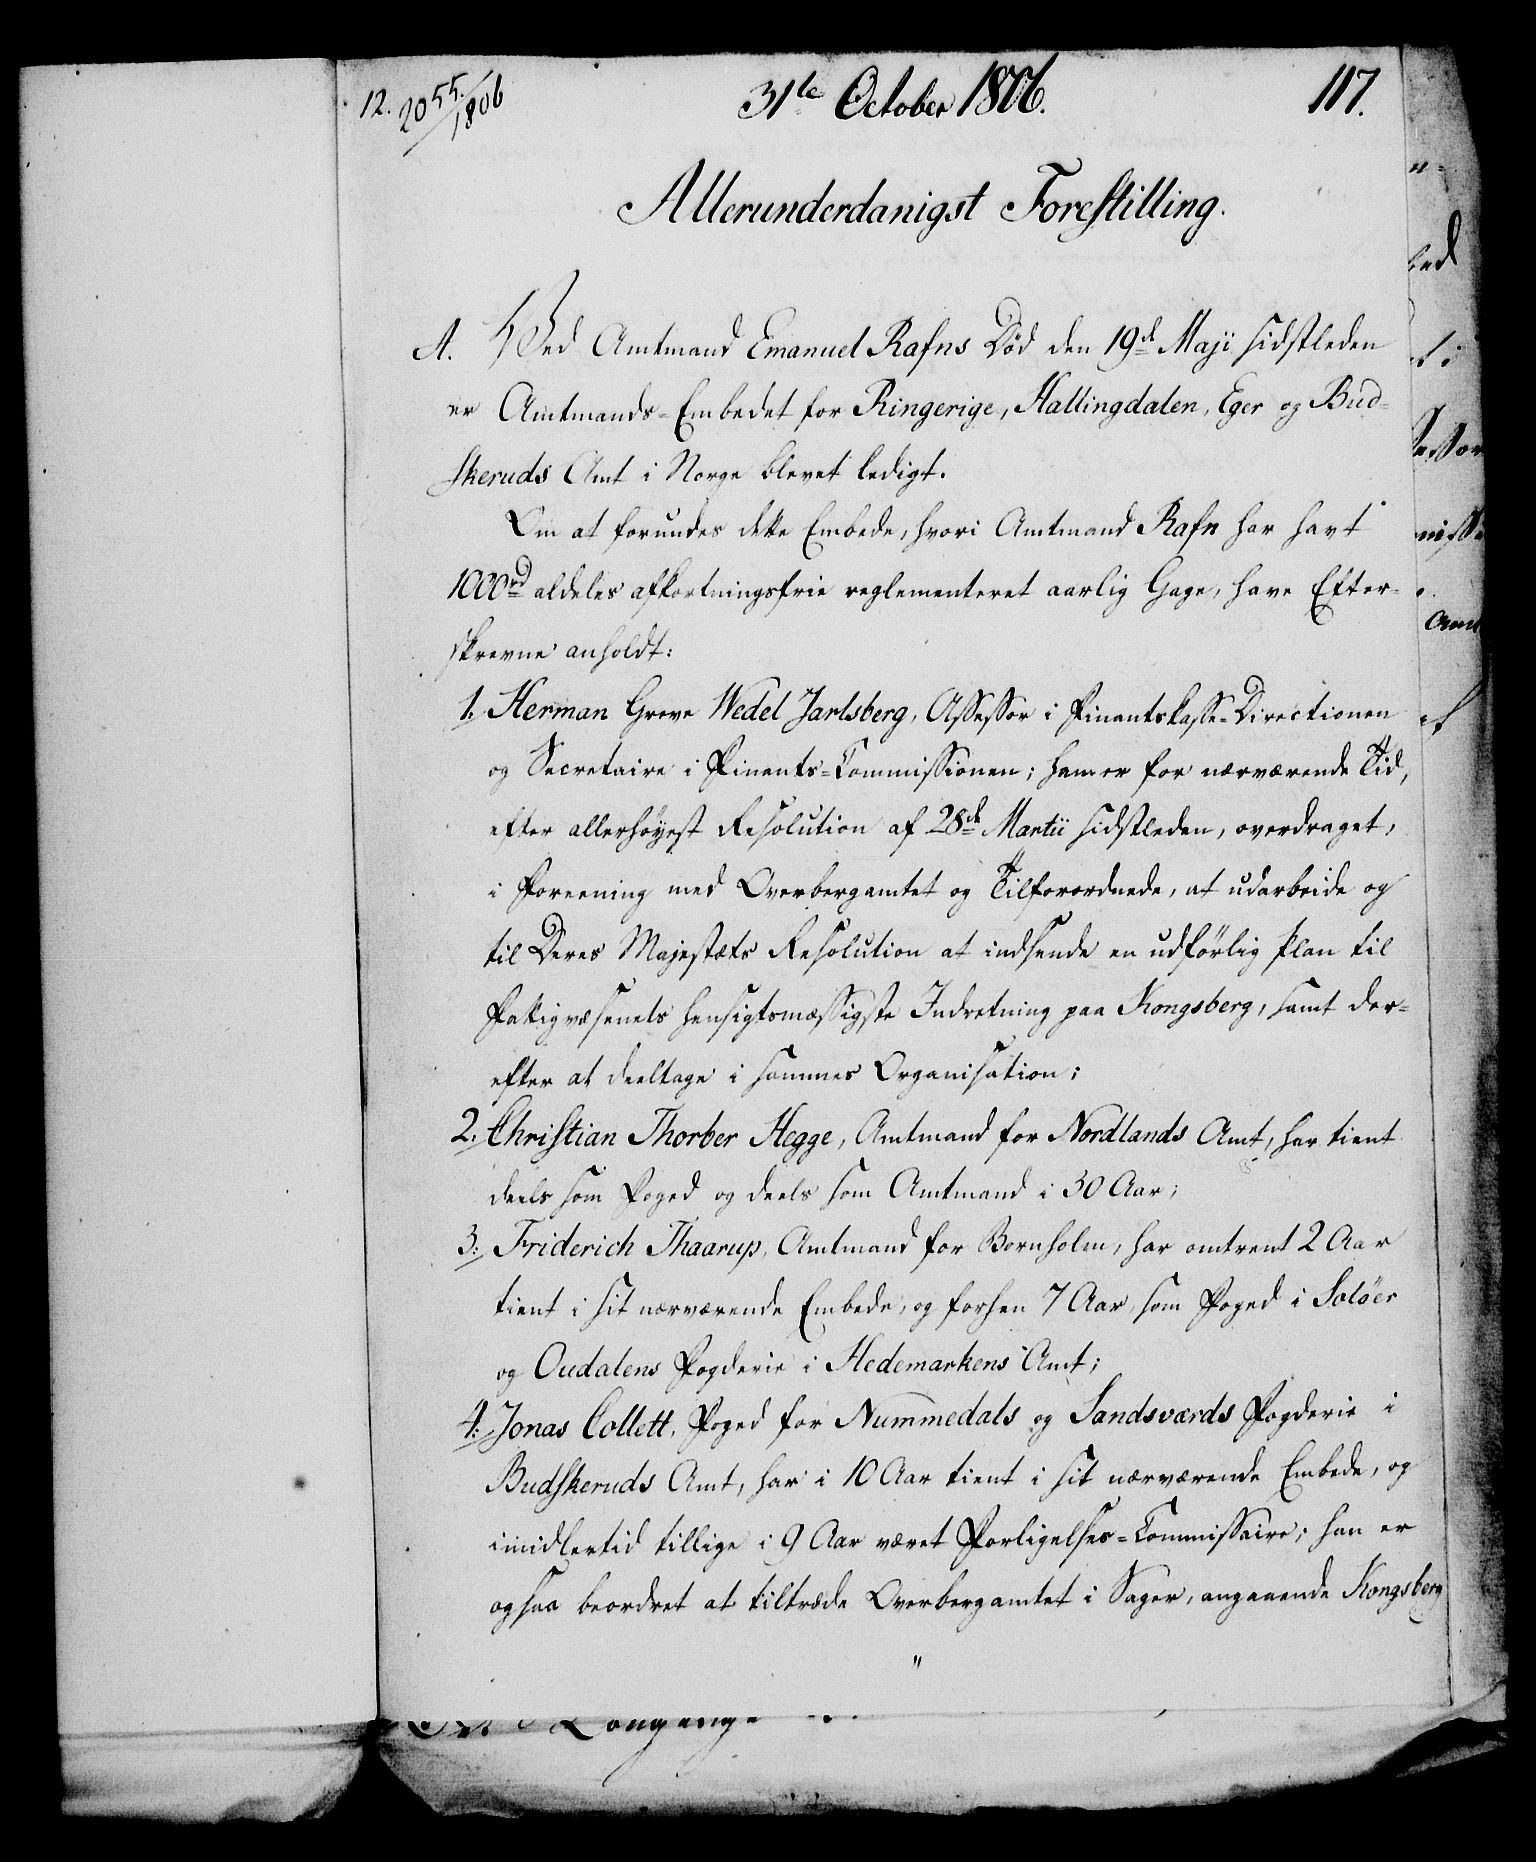 12. 2055/1806
31te October 1806.
117.
Allerunderdanigst Forestilling.
A. Ved Amtmand Emanuel Rafns Död den 19de Maji sidstleden
er Amtmands-Embedet for Ringerige, Hallingdalen, Eger og Bud-
skeruds Amt i Norge blevet ledigt.
Om at forundes dette Embede, hvori Amtmand Rafn har havt
1000rd aldeles afkortningsfrie reglementeret aarlig Gage, have Efter-
skrevne anholdt:
1. Herman Greve Wedel Jarlsberg, Assessor i Finantskasse-Directionen
og Secretaire i Finants-Commissionen; ham er for nærværende Tid,
efter allerhöyest Resolution af 28de Martii sidstleden, overdraget,
i Foreening med Overbergamtet og Tilforordnede, at udarbeide og
til Deres Majestæts Resolution at indsende en udförlig Plan til
Fattigvæsenets hensigtsmæssigste Indretning paa Kongsberg, samt der-
efter at deeltage i sammes Organisation;
2. Christian Thorber Hegge, Amtmand for Nordlands Amt, har tient
deels som Foged og deels som Amtmand i 30 Aar;
3. Friderich Thaarup, Amtmand for Bornholm, har omtrent 2 Aar
tient i sit nærværende Embede, og forhen 7 Aar som Foged i Solöer
og Oudalens Fogderie i Hedemarkens Amt;
4. Jonas Collett, Foged for Nummedals og Sandsværds Fogderie i
Budskeruds Amt, har i 10 Aar tient i sit nærværende Embede, og
imidlertid tillige i 9 Aar været Forligelses-Commissaire; han er
ogsaa beordret at tiltræde Overbergamtet i Sager, angaaende Kongsberg
"